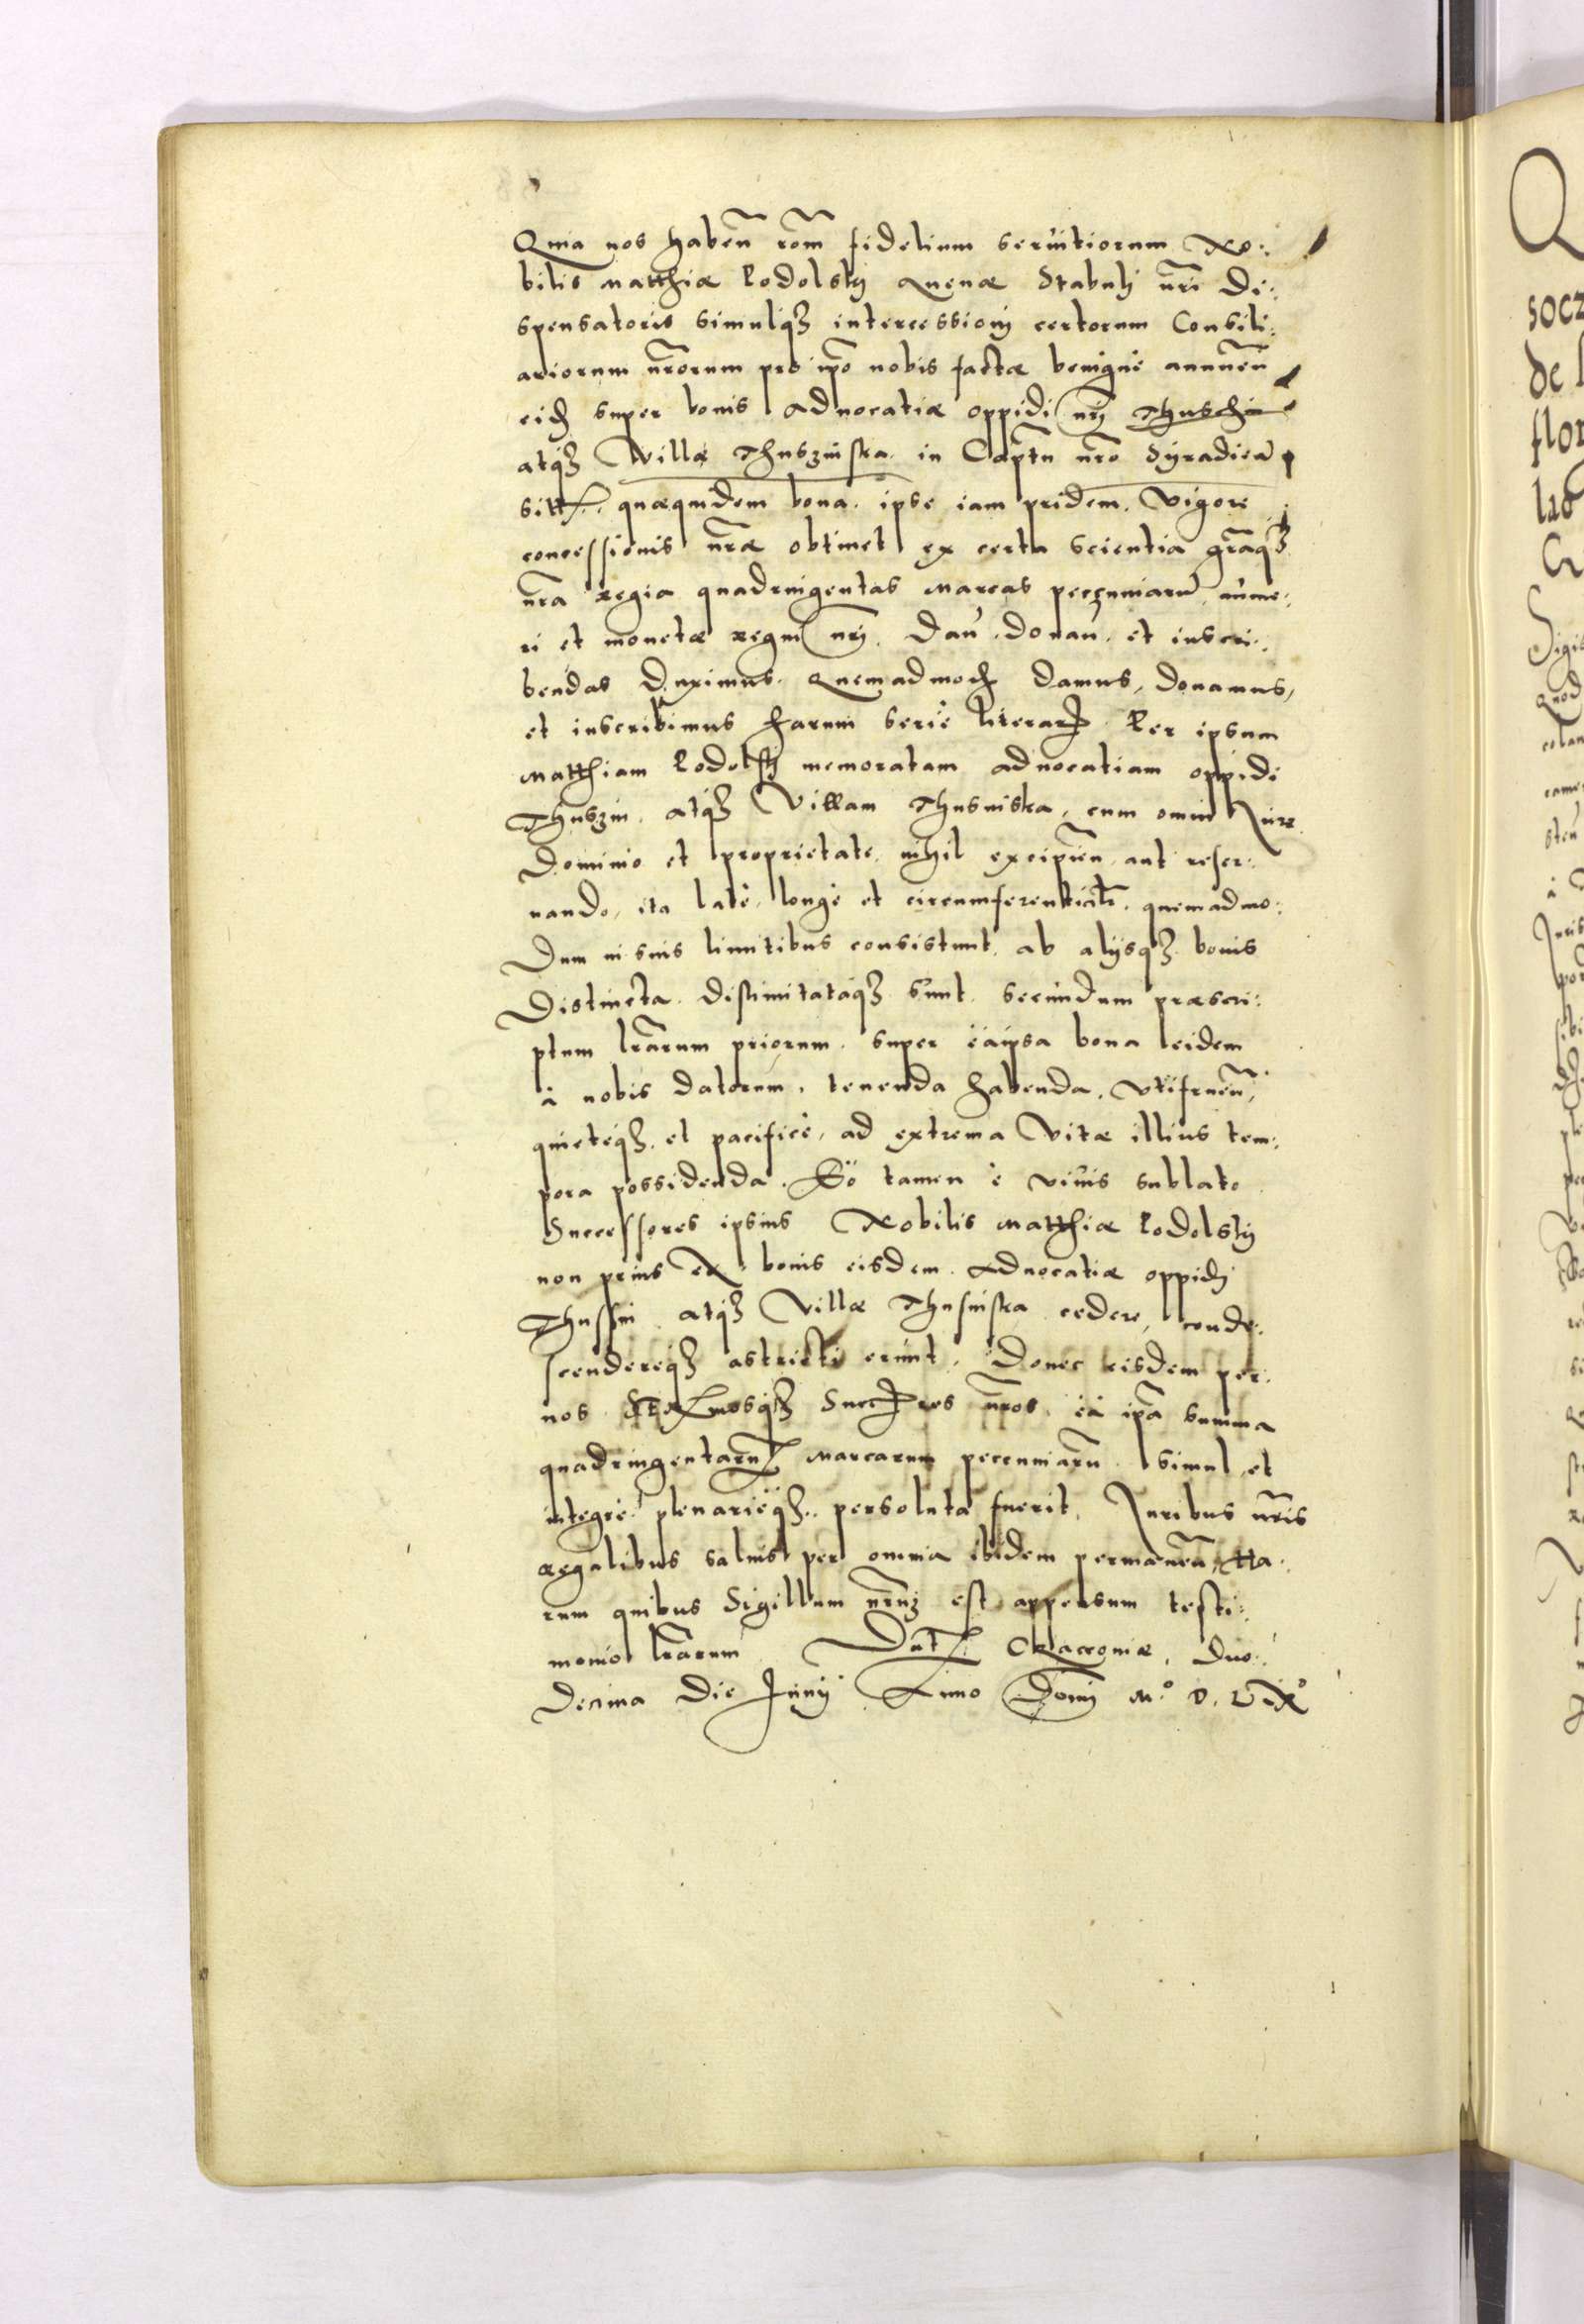 Quia nos habeñ rõm fidelium seruitiorum No:
bilis Matthiæ Podolskÿ Auenæ Stabulj nri̅ Di:
spensatoris simulq₃ intercessionj certorum Consili:
ariorum nr̅orum pro ip̅o nobis factæ benignè annueñ
eid̄ super bonis Aduocatiæ oppidi nrj̅ Thuschin
atq₃ Villæ Thuszinska in Cap̅tu nr̅o Sÿradień
sitt. quæquidem bona ipse iam pridem Vigore
concessionis nr̅æ obtinet ex certa scientia gr̅aq₃
nr̅a regia quadringentas Marcas peccuniarū nume:
ri et monetæ regni nrj̅. Dañ. donañ. et inscri:
bendas duximus. Quemadmod̄ damus, donamus,
et inscribimus harum serie literar̄ Per ipsum
Matthiam Podolskj memoratam aduocatiam oppidi
Thuszin atq₃ Villam Thusniska, cum omni Iure
Dominio et proprietate, nihil excipień aut reser:
uando, ita latè, longè et circumferentialr̅, quemadmo:
Dum in suis limitibus consistunt, ab alijsq₃ bonis
Distincta distimitataq₃ sunt, secundum præscri:
ptum lr̅arum priorum super eaipsa bona eidem
à nobis datorum, tenenda habenda, Vtifrueñ,
quieteq₃ et pacificè, ad extrema Vitæ illius tem:
pora possidenda. Eo tamen è viuis sublato
Successores ipsius Nobilis Matthiæ Podolskÿ
non prius ex bonis eisdem Aduocatiæ oppidj
Thussin atq₃ Villæ Thusinska cedere, conde:
scendereq₃ astricti erunt, Donec eisdem per
nos Ser.mosq₃ Succ̄res nr̅os ea ip̅a summa
quadringentaru̅ Marcarum peccuniaru̅ simul et
integrè plenarieq₃ persoluta fuerit, Iuribus nr̅is
regalibus saluis per omnia ibidem permaneñ, Ha:
rum quibus Sigillum nr̅um est appensum testi:
monio lr̅arum Dat̅. Cracouiæ, duo:
decima die Iunij Anno Domj̅ M.º D. LIXº